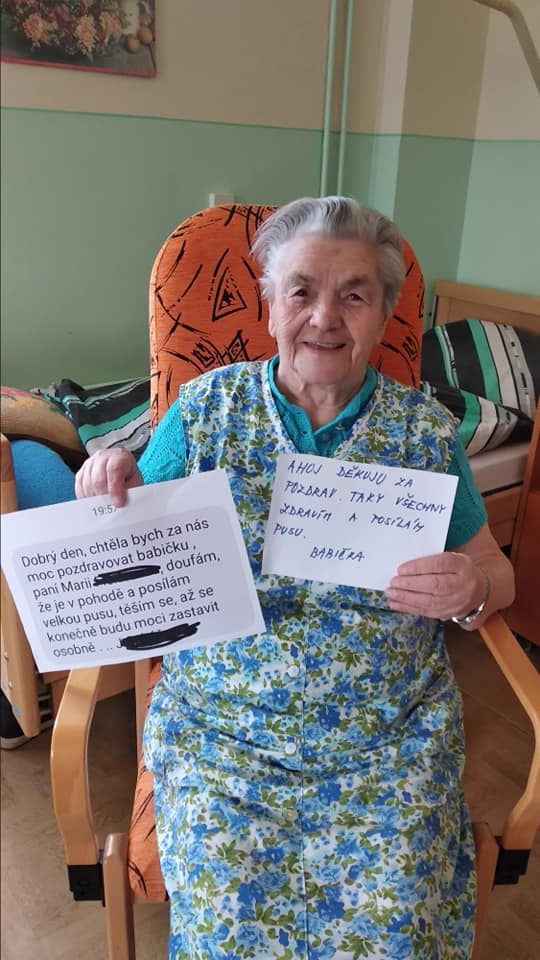 19:57
Dobrý den, chtěla bych za nás
moc pozdravovat babičku ,
paní Marii , doufám,
že je v pohodě a posílám
velkou pusu, těším se, až se
konečně budu moci zastavit
osobně . ..
AHOJ DĚKUJU ZA
POZDRAV. TAKY VŠECHNY
ZDRAVÍM A POSÍLÁM
PUSU.
BABIČKA